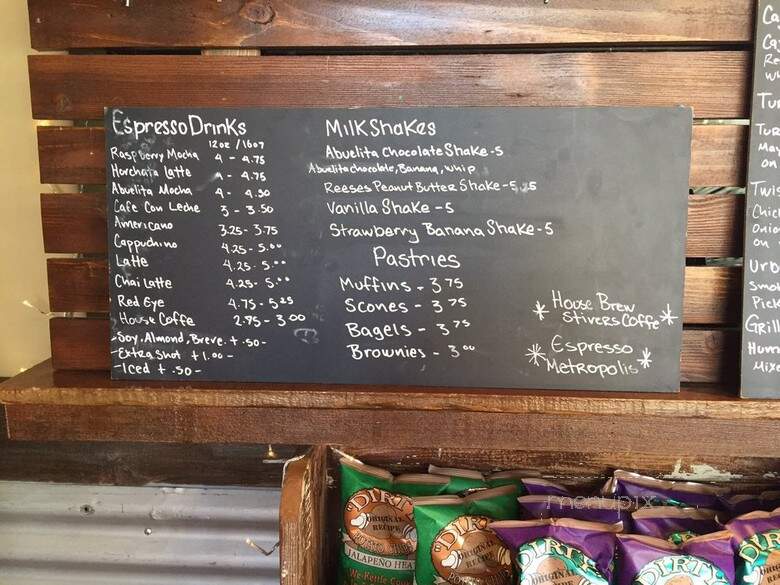 Espresso Drinks
12oz / 16oz
Raspberry Mocha 4 - 4.75
Horchata Latte 4 - 4.75
Abuelita Mocha 4 - 4.50
Cafe Con Leche 3 - 3.50
Americano 3.25 - 3.75
Cappuchino 4.25 - 5.00
Latte 4.25 - 5.00
Chai Latte 4.25 - 5.00
Red Eye 4.75 - 5.25
House Coffe 2.75 - 3.00
- Soy, Almond, Breve + .50 -
- Extra Shot + 1.00 -
- Iced + .50 -
MilkShakes
Abuelita Chocolate Shake - 5
Abuelita chocolate, Banana, whip
Reeses Peanut Butter Shake - 5.25
Vanilla Shake - 5
Strawberry Banana Shake - 5
Pastries
Muffins - 3.75
Scones - 3 75
Bagels - 3 75
Brownies - 3 00
* House Brew
Stivers Coffe *
* Espresso
Metropolis *
Ca
Ca
Re
wh
Tur
Tur
May
on
Twis
Chic
Onion
on
Urb
Smok
Pick
Grill
Humm
Mixe
menupix
"DIRTY
ORIGINAL
RECIPE
POTATO CHIPS
JALAPEÑO HEA
We Kettle Co
"DIRTY
ORIGINAL
RECIPE
"DIRTY
ORIGINAL
DIRTY